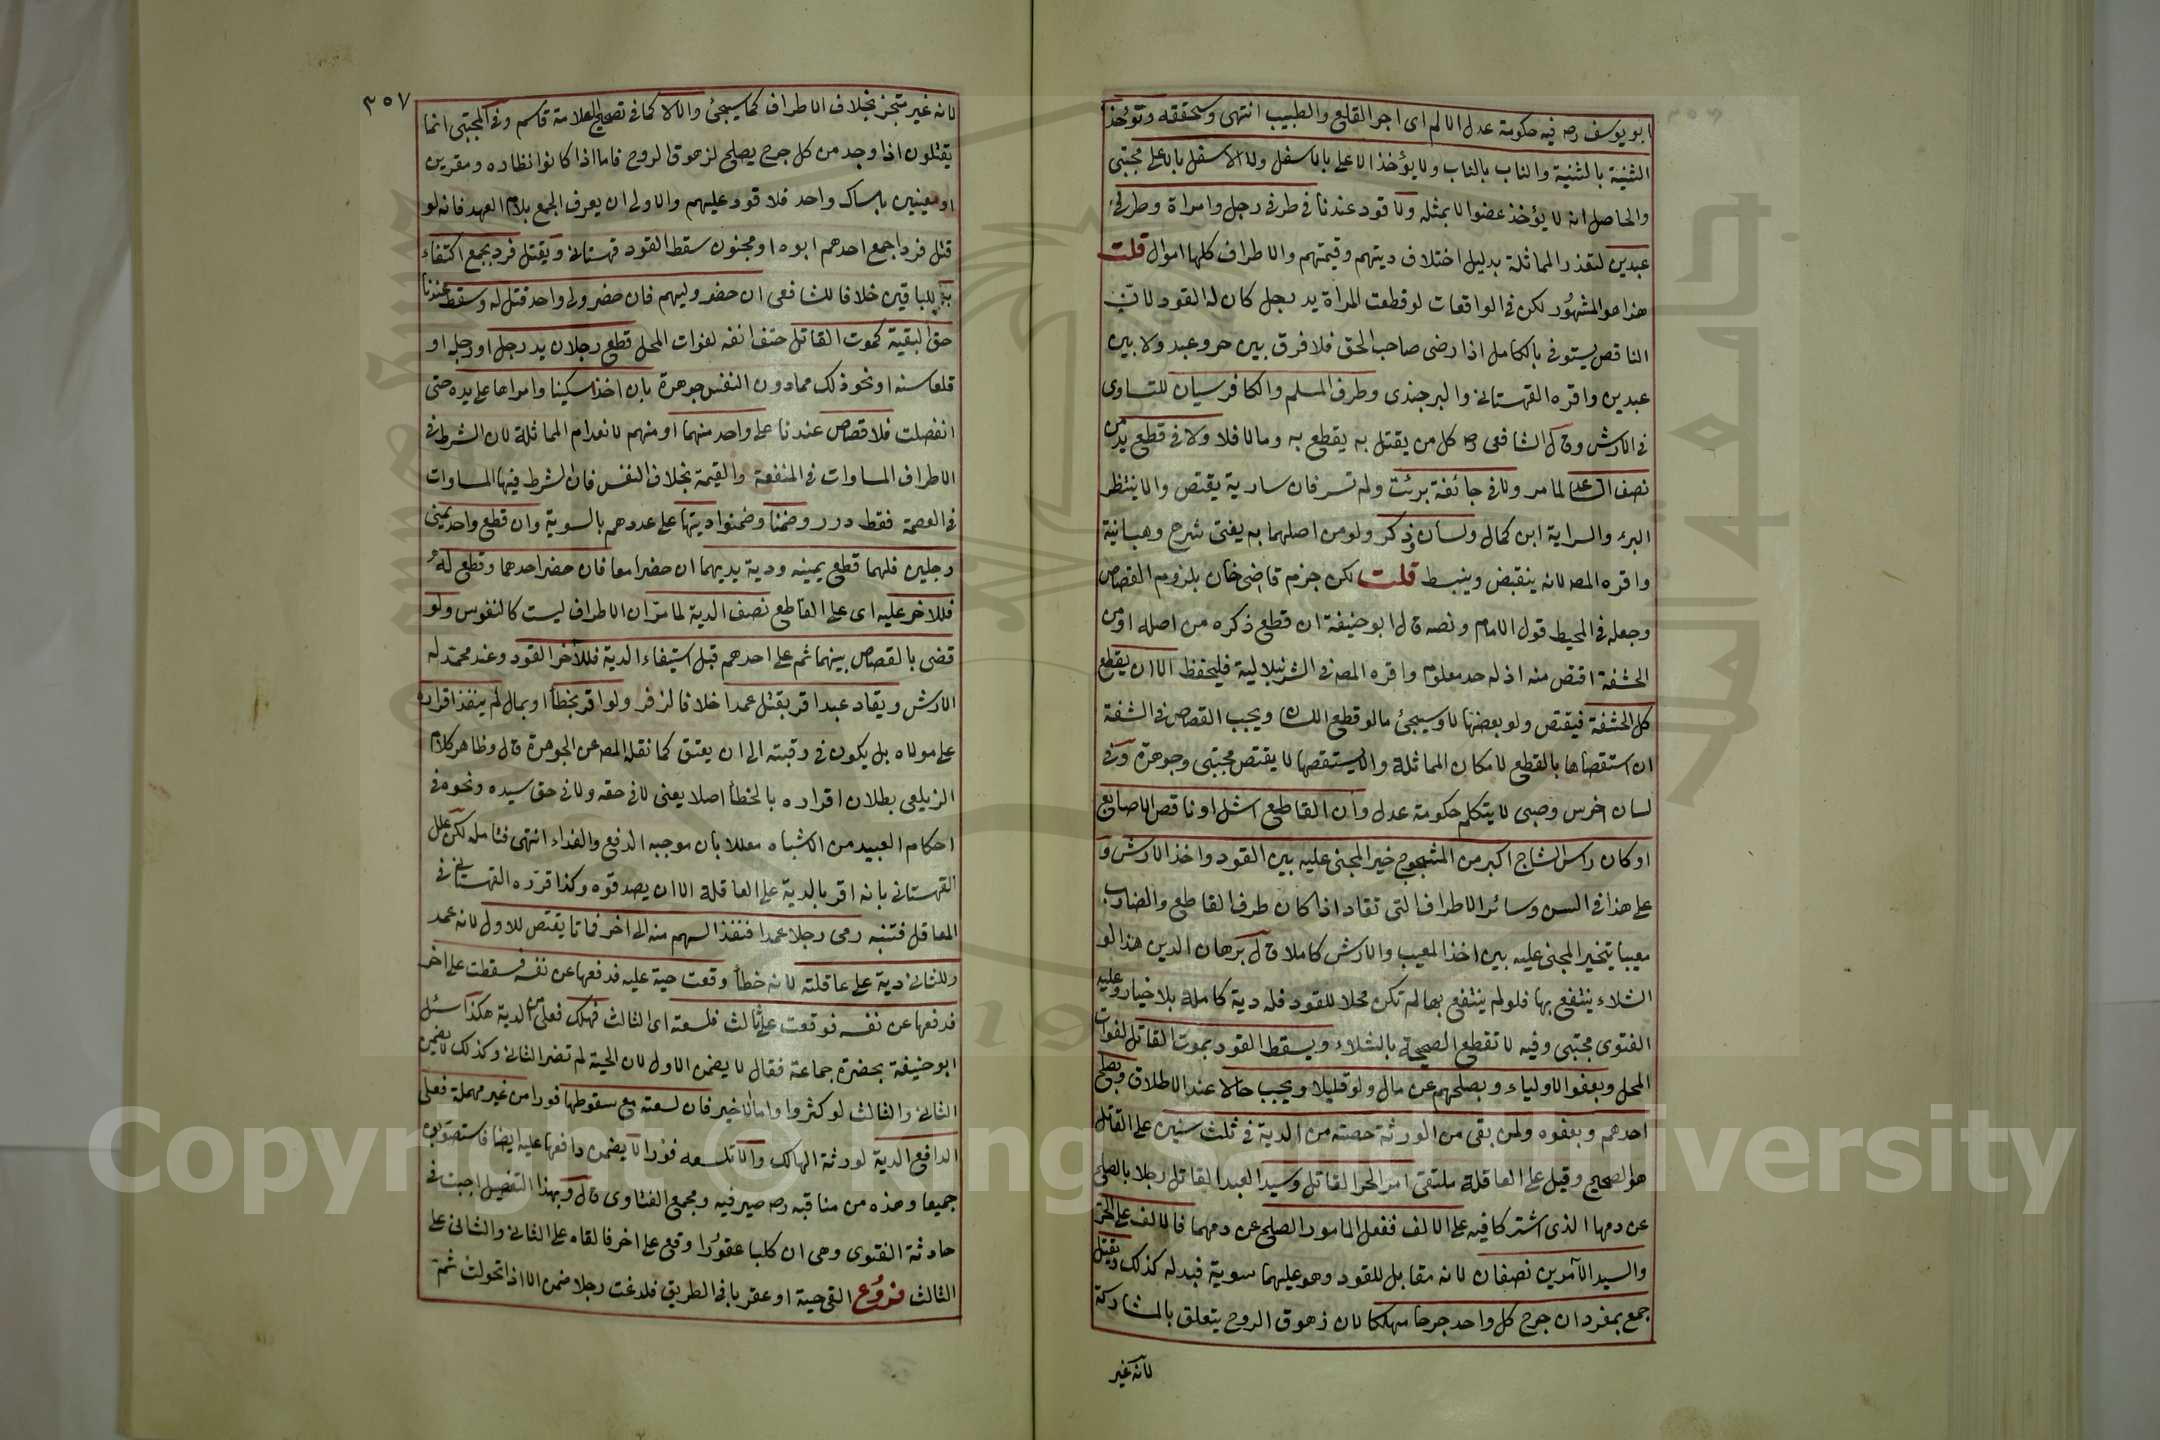 ابو يوسف رح فيه حكومة عدل الالم اى اجر القلع والطبيب انتهى وسحققه وتؤخذ
الثنية بالثنية والناب بالناب ولا يؤخذ الاعلى بالاسفل ولا الاسفل بالاعلى مجتبى
والحاصل انه لا يؤخذ عضوا لا بمثله ولا قود عندنا فى طرفى رجل وامراة وطرفى
عبدين لتعذر المماثلة بدليل اختلاف ديتهم وقيمتهم والاطراف كلها اموال قلت
هذا هو المشهور لكن فى الواقعات لو قطعت المراة يد رجل كان له القود لان
الناقص يستوفى بالكامل اذا رضى صاحب الحق فلا فرق بين حر وعبد ولا بين
عبدين واقره القهستانى والبرجندى وطرف المسلم والكافر سيان للتساوى
فى الارش وقال الشافعى رح كل من يقتل به يقطع به وما لا فلا ولا فى قطع يد من
نصف الساعد لما مر ولا فى جائفة برئت ولم تسر فان سارية يقتص والا ينتظر
البرء والسراية ابن كمال ولسان وذكر ولو من اصلهما به يفتى شرح وهبانية
واقره المص لانه ينقبض وينبسط قلت لكن جزم قاضى خان بلزوم القصاص
وجعله فى المحيط قول الامام ونصه قال ابو حنيفة ان قطع ذكره من اصله او من
الحشفة اقتص منه اذ له حد معلوم واقره المص فى الشرنبلالية فليحفظ الا ان يقطع
كل الحشفة فيقتص ولو بعضها لا وسيجئ ما لو قطع اللسان ويجب القصاص فى الشفة
ان استقصاها بالقطع لامكان المماثلة والا يستقصها لا يقتص مجتبى وجوهرة وفى
لسان اخرس وصبى لا يتكلم حكومة عدل وان القاطع اشل او ناقص الاصابع
او كان راس الشاج اكبر من المشجوج خير المجنى عليه بين القود واخذ الارش و
على هذا فى السن وسائر الاطراف التى تقاد اذا كان طرف القاطع والضارب
معيبا يتخير المجنى عليه بين اخذ المعيب والارش كاملا قال برهان الدين هذا لو
الشلاء ينتفع بها فلو لم ينتفع بها لم تكن محلا للقود فله دية كاملة بلا خيار وعليه
الفتوى مجتبى وفيه لا تقطع الصحيحة بالشلاء ويسقط القود بموت القاتل لفوات
المحل وبعفو الاولياء وبصلحهم عن مال ولو قليلا ويجب حالا عند الاطلاق وبصلح
احدهم وبعفوه ولمن بقى من الورثة حصته من الدية فى ثلث سنين على القاتل
هو الصحيح وقيل على العاقلة ملتقى امر الحر القاتل وسيد العبد القاتل رجلا بالصلح
عن دمها الذى اشتركا فيه على الالف ففعل المامور الصلح عن دمهما فالالف على الحر
والسيد الآمرين نصفان لانه مقابل للقود وهو عليهما سوية فبدله كذلك ويقتل
جمع بمفرد ان جرح كل واحد جرحا مهلكا لان زهوق الروح يتعلق بالمشاركة
لانه غير
٣٥٧
لانه غير متجز بخلاف الاطراف كما سيجئ والا لا كما فى تصحيح العلامة قاسم وفى المجتبى انما
يقتلون اذا وجد من كل جرح يصلح لزهوق الروح فاما اذا كانوا نظاره ومغرين
او معينين بامساك واحد فلا قود عليهم والاولى ان يعرف الجمع بلام العهد فانه لو
قتل فرد اجمع احدهم ابوه او مجنون سقط القود قهستانى ويقتل فرد بجمع اكتفاء
به للباقين خلافا للشافعى ان حضر وليهم فان حضر ولى واحد قتل له وسقط عندنا
حق البقية كموت القاتل حتف انفه لفوات المحل قطع رجلان يد رجل او رجله او
قلعا سنه او نحو ذلك مما دون النفس جوهرة بان اخذا سكينا وامراها على يده حتى
انفصلت فلا قصاص عندنا على واحد منهما او منهم لانعدام المماثلة لان الشرط فى
الاطراف المساوات فى المنفعة والقيمة بخلاف النفس فان الشرط فيها المساوات
فى العصمة فقط درر وضمنا وضمنوا ديتها على عددهم بالسوية وان قطع واحد يمنى
رجلين فلهما قطع يمينه ودية يديهما ان حضرا معا فان حضر احدهما وقطع له
فللاخر عليه اى على القاطع نصف الدية لما مر ان الاطراف ليست كالنفوس ولو
قضى بالقصاص بينهما ثم على احدهم قبل استيفاء الدية فللآخر القود وعند محمد له
الارش ويقاد عبد اقر بقتل عمدا خلافا لزفر ولو اقر بخطأ او بمال لم ينفذ اقراره
على مولاه بل يكون فى رقبته الى ان يعتق كما نقله المص عن الجوهرة قال وظاهر كلام
الزيلعى بطلان اقراره بالخطأ اصلا يعنى لا فى حقه ولا فى حق سيده ونحوه فى
احكام العبيد من الاشباه معللا بان موجبه الدفع والفداء انتهى فتامله لكن علل
القهستانى بانه اقر بالدية على العاقلة الا ان يصدقوه وكذا قرره القهستانى فى
المعاقل فتنبه رمى رجلا عمدا فنفذ السهم منه الى اخر فماتا يقتص للاول لانه عمد
وللثانى دية على عاقلته لانه خطأ وقعت حية عليه فدفعها عن نفسه فسقطت على اخر
فدفعها عن نفسه فوقعت على ثالث فلسعته اى الثالث فهلك فعلى من الدية هكذا سئل
ابو حنيفة بحضرة جماعة فقال لا يضمن الاول لان الحية لم تضر الثانى وكذلك لا يضمن
الثانى والثالث لو كثروا واما الاخير فان لسعته مع سقوطها فورا من غير مهلة فعلى
الدافع الدية لورثة الهالك والا تلسعه فورا لا يضمن دافعها عليه ايضا فاستصوبوه
جميعا وهذه من مناقبه رح صيرفيه ومجمع الفتاوى قال وبهذا التفصيل اجبت فى
حادثة الفتوى وهى ان كلبا عقورا وقع على اخر فالقاه على الثانى والثانى على
الثالث فروع القى حية او عقربا فى الطريق فلدغت رجلا ضمن الا اذا تحولت ثمة
Copyright © King Saud University